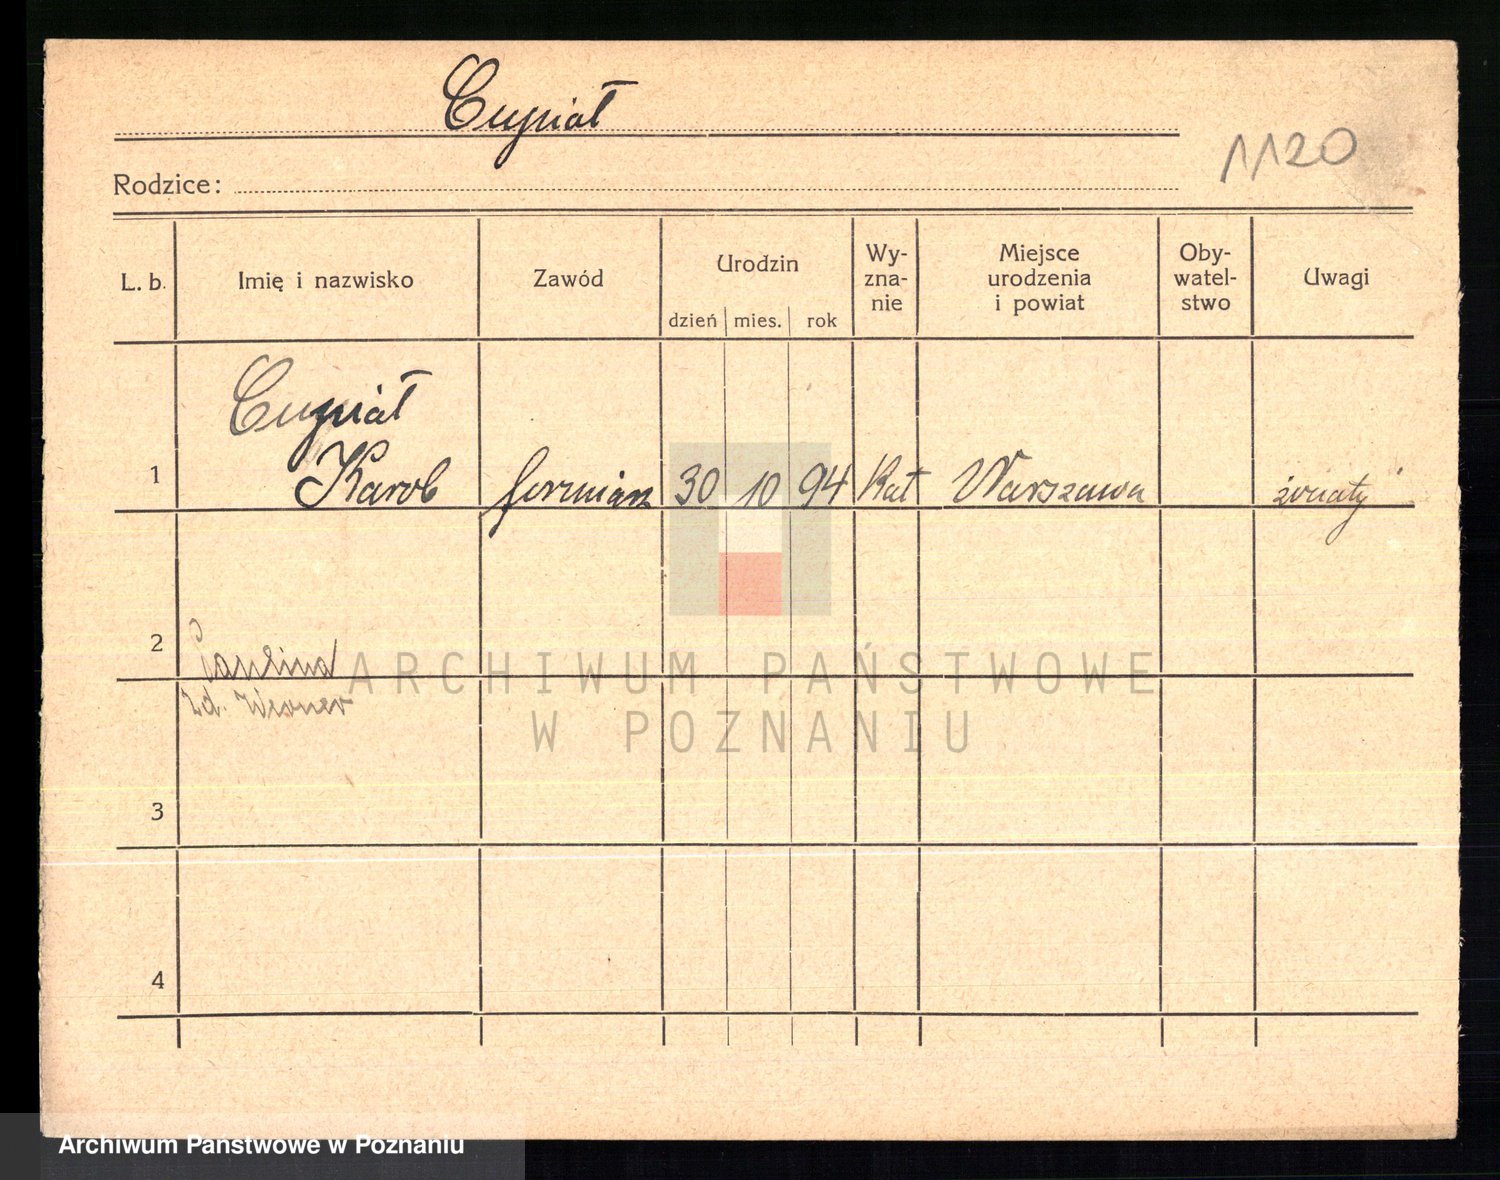 Cupiał
1120
Rodzice:
L. b.
Imię i nazwisko
Zawód
Urodzin
dzień
mies.
rok
Wy-
zna-
nie
Miejsce
urodzenia
i powiat
Oby-
watel-
stwo
Uwagi
1
Cupiał
Karol
30
10
94
Kat
Warszawa
żonaty
2
Paulina
zd.
3
4
ARCHIWUM PAŃSTWOWE
W POZNANIU
Archiwum Państwowe w Poznaniu